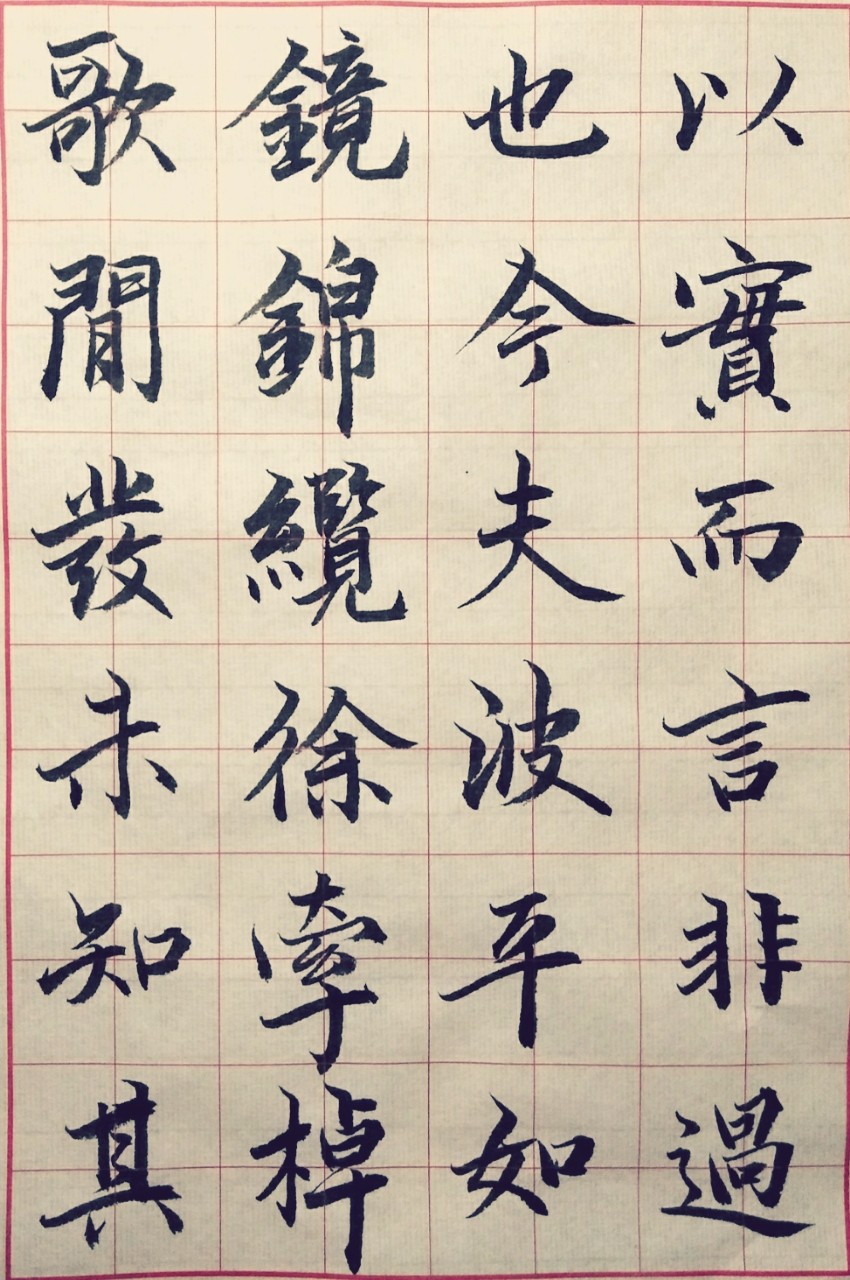 以實而言非過
也今夫波平如
鏡錦纜徐牽棹
歌間發未知其